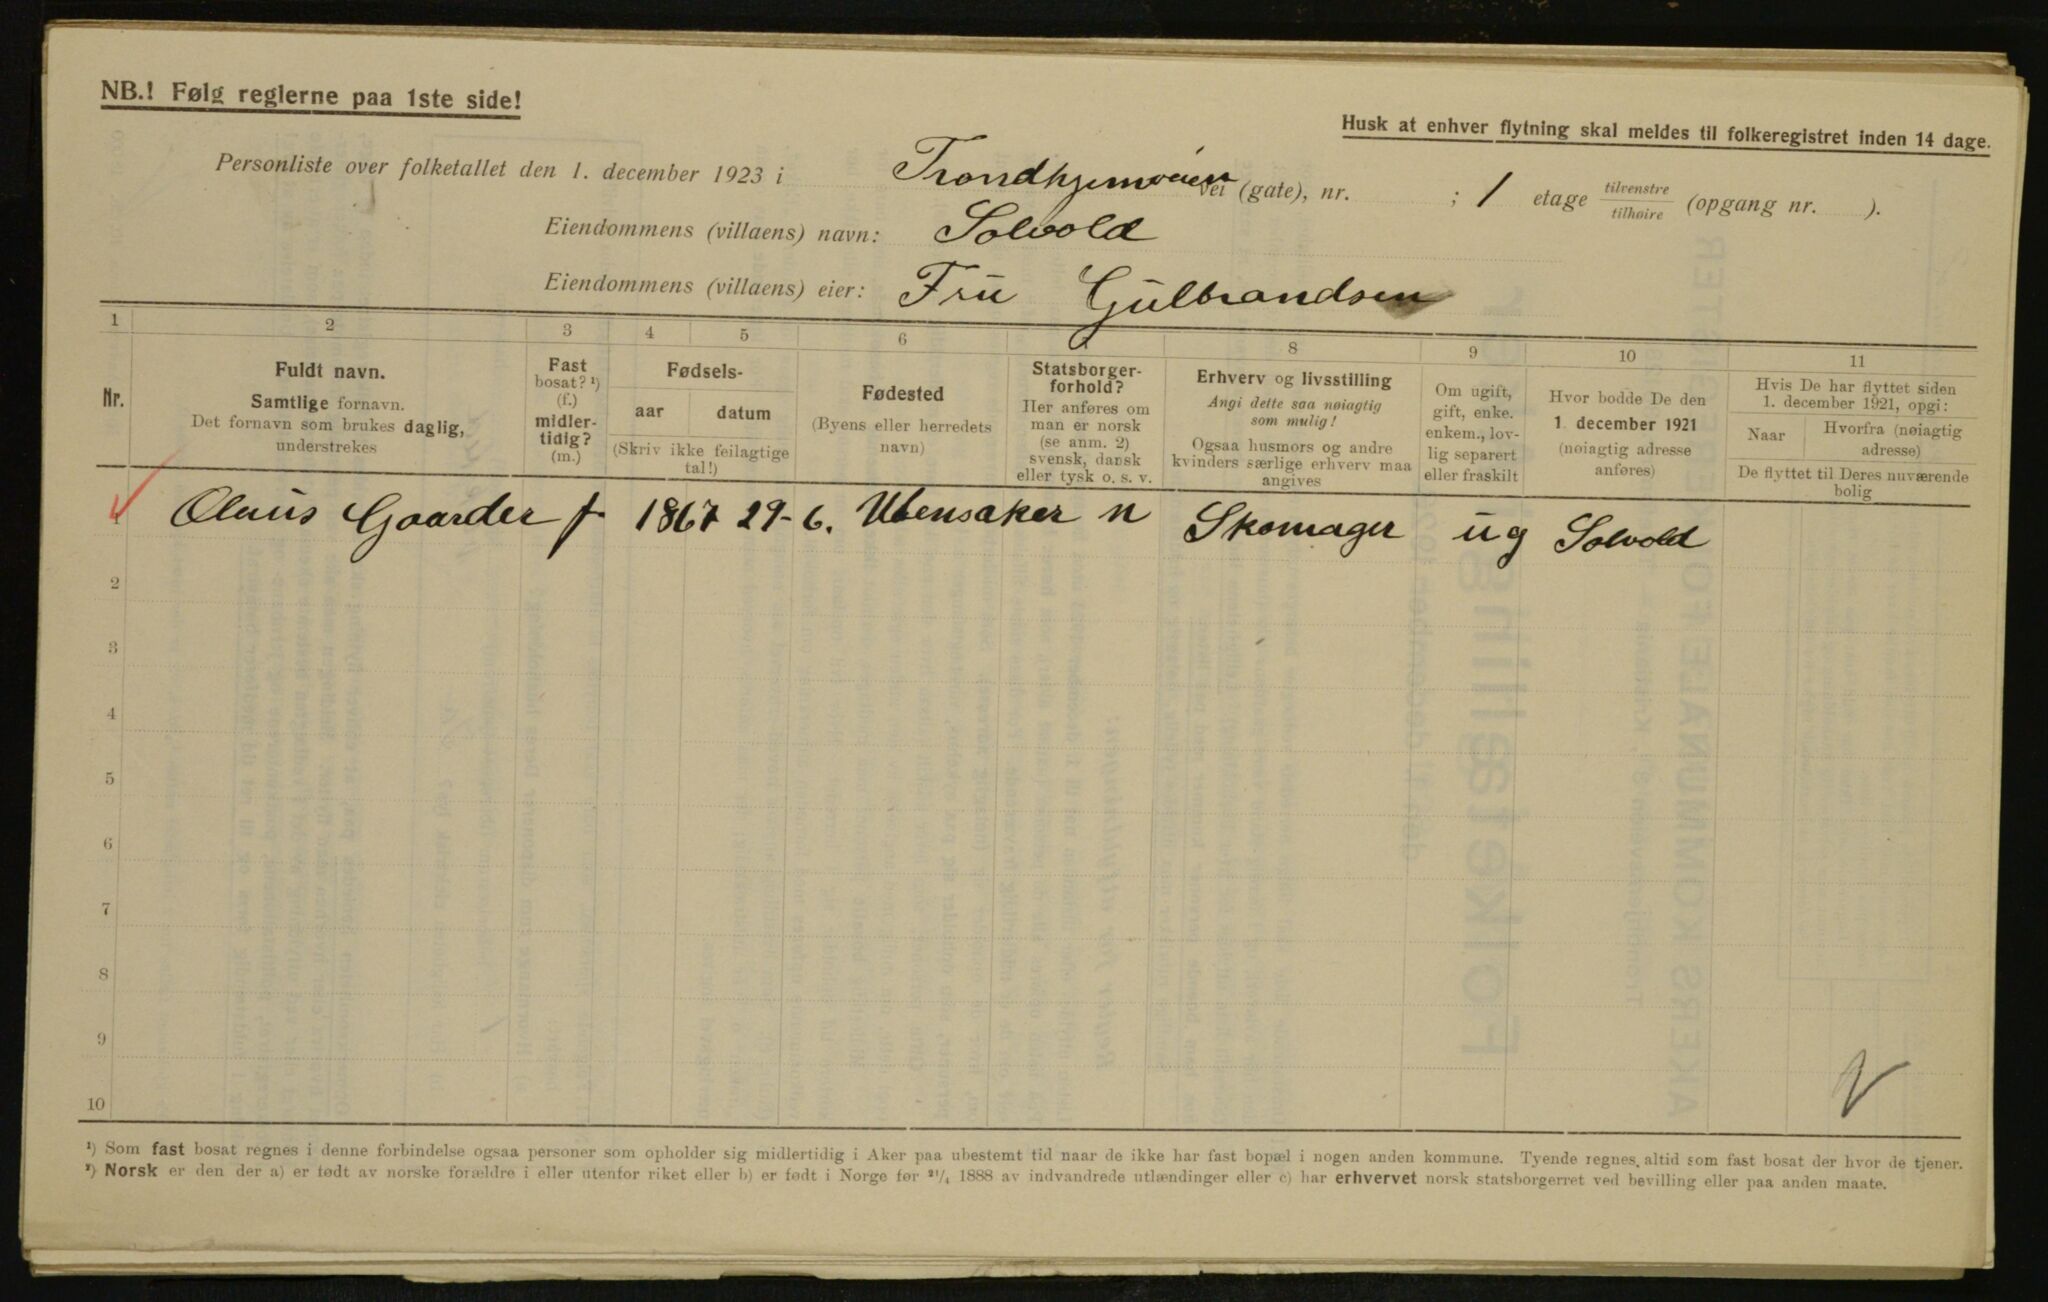 NB.! Følg reglerne paa 1ste side!
Husk at enhver flytning skal meldes til folkeregistret inden 14 dage.
Personliste over folketallet den 1. december 1923 i Trondhjemveien vei (gate), nr. ; 1 etage tilvenstre tilhøire (opgang nr. ).
Eiendommens (villaens) navn: Solvold
Eiendommens (villaens) eier: Fru Gulbrandsen
1 2 3 4 5 6 8 9 10 11
Nr.
Fuldt navn.
Samtlige fornavn.
Det fornavn som brukes daglig,
understrekes
Fast
bosat? ¹)
(f.)
midler-
tidig?
(m.)
Fødsels-
aar datum
(Skriv ikke feilagtige
tal!)
Fødested
(Byens eller herredets
navn)
Statsborger-
forhold?
Her anføres om
man er norsk
(se anm. 2)
svensk, dansk
eller tysk o. s. v.
Erhverv og livsstilling
Angi dette saa nøiagtig
som mulig!
Ogsaa husmors og andre
kvinders særlige erhverv maa
angives
Om ugift,
gift, enke.
enkem., lov-
lig separert
eller fraskilt
Hvor bodde De den
1. december 1921
(nøiagtig adresse
anføres)
Hvis De har flyttet siden
1. december 1921, opgi:
Naar
Hvorfra (nøiagtig
adresse)
De flyttet til Deres nuværende
bolig
1 Olaus Gaarder f 1867 29-6. Ullensaker n Skomager ug Solvold
2
3
4
5
6
7
8
9
10
¹) Som fast bosat regnes i denne forbindelse ogsaa personer som opholder sig midlertidig i Aker paa ubestemt tid naar de ikke har fast bopæl i nogen anden kommune. Tyende regnes altid som fast bosat der hvor de tjener.
²) Norsk er den der a) er født av norske forældre i eller utenfor riket eller b) er født i Norge før 21/4 1888 av indvandrede utlændinger eller c) har erhvervet norsk statsborgerret ved bevilling eller paa anden maate.